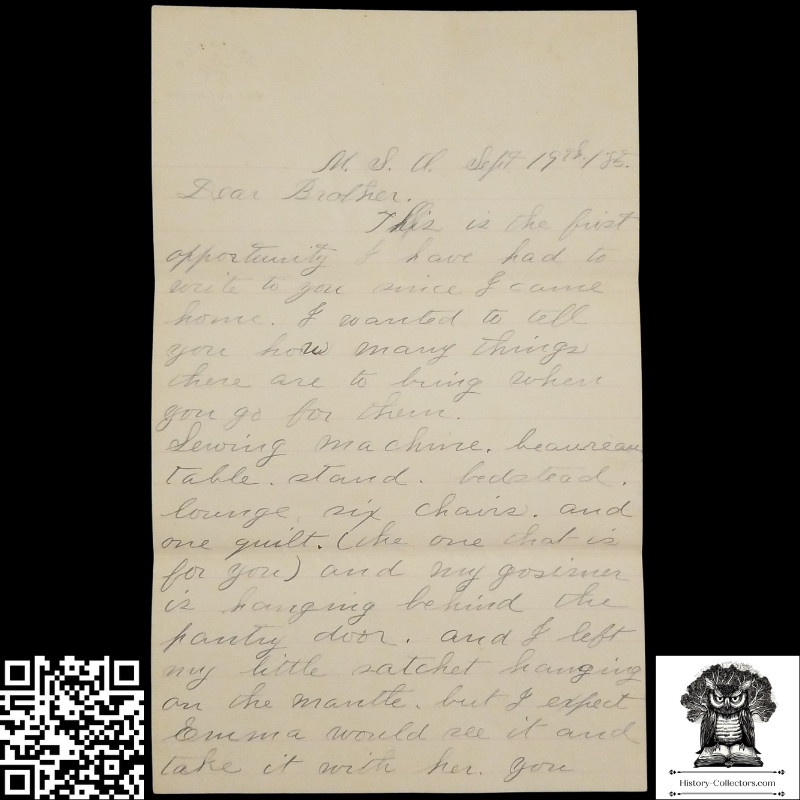 M. S. U. Sept 19th, 188
Dear Brother.
This is the first
opportunity I have had to
write to you since I came
home. I wanted to tell
you how many things
there are to bring when
you go for them.
Sewing machine. beaureau
table. stand. bedstead.
lounge. six chairs. and
one quilt. (the one that is
for you) and my gosimer
is hanging behind the
pantry door. and I left
my little satchet hanging
on the mantle. but I expect
Emma would see it and
take it with her. you
History-Collectors.com